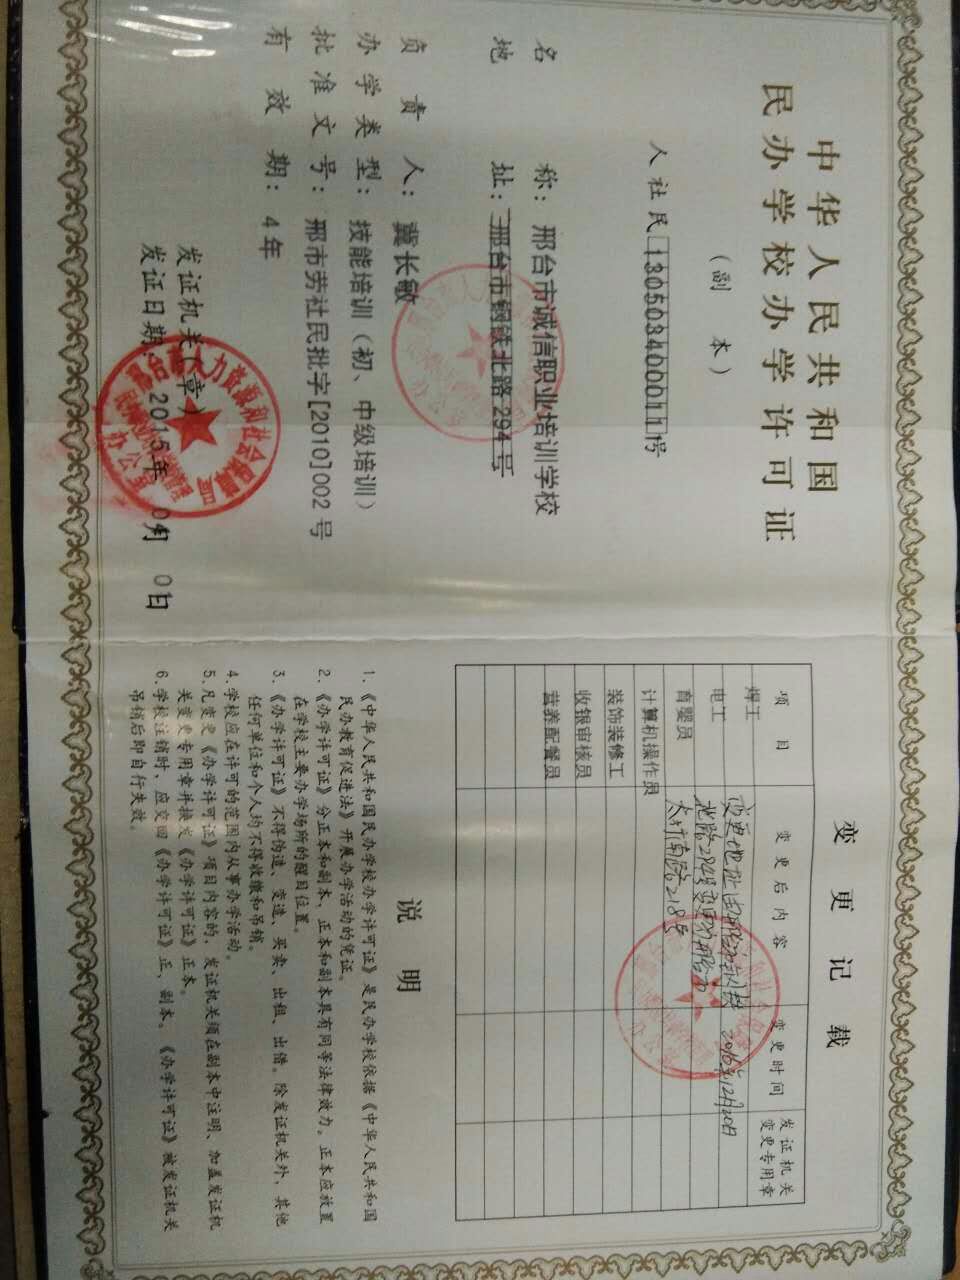 中华人民共和国
民办学校办学许可证
（副 本）
人社民1305034000111号
名 称：邢台市诚信职业培训学校
地 址：邢台市钢铁北路294号
负 责 人：冀长敏
办学类型：技能培训（初、中级培训）
批准文号：邢市劳社民批字[2010]002号
有 效 期：4年
发证机关（章）
发证日期：2015年
变更记载
项 目 变更后内容 变更时间 发证机关变更专用章
焊工
电工
育婴员
计算机操作员
装饰装修工
收银审核员
营养配餐员
变更地址由邢台市钢铁
北路294号变更为邢台市
太行南路218号
2016年12月20日
说 明
1.《中华人民共和国民办学校办学许可证》是民办学校依据《中华人民共和国
民办教育促进法》开展办学活动的凭证。
2.《办学许可证》分正本和副本，正本和副本具有同等法律效力。正本应放置
在学校主要办学场所的醒目位置。
3.《办学许可证》不得伪造、变造、买卖、出租、出借。除发证机关外，其他
任何单位和个人均不得收缴和吊销。
4.学校应在许可的范围内从事办学活动。
5.凡变更《办学许可证》项目内容的，发证机关须在副本中注明、加盖发证机
关变更专用章并换发《办学许可证》正本。
6.学校注销时，应交回《办学许可证》正、副本。《办学许可证》被发证机关
吊销后即自行失效。